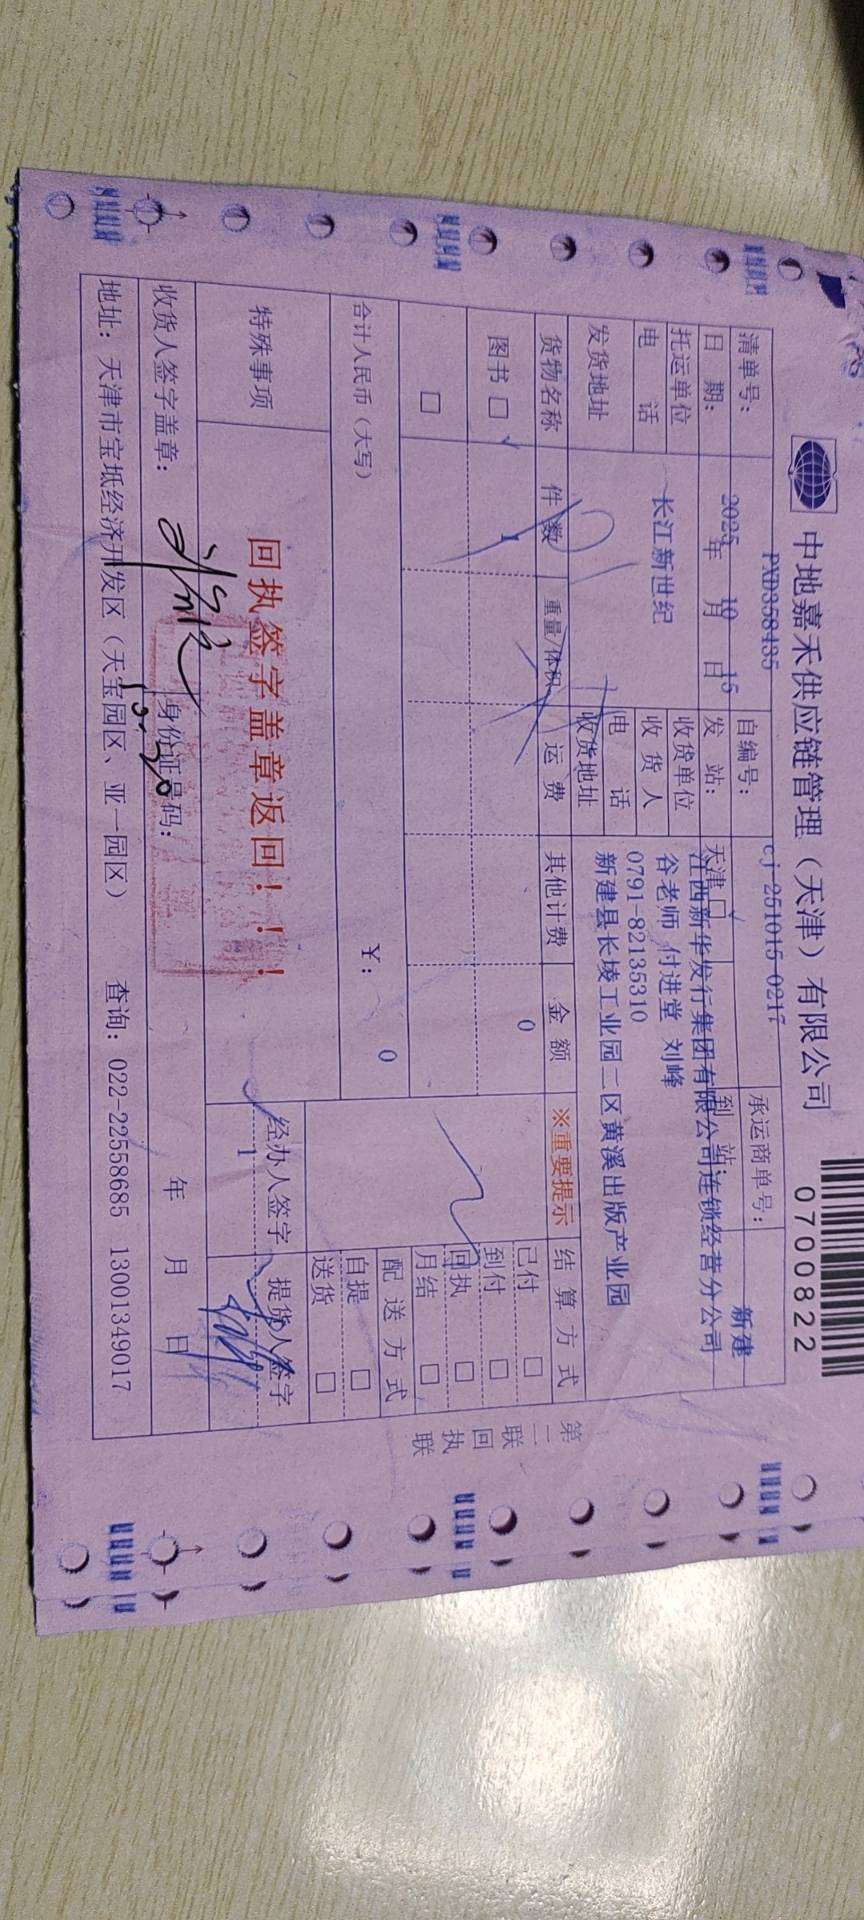 中地嘉禾供应链管理（天津）有限公司
0700822
清单号： PXD358435 自编号： cj-251015-0217 承运商单号：
日期： 2025年 10月 15日 发站： 天津 □ 到站： 新建
托运单位 长江新世纪 收货单位 江西新华发行集团有限公司连锁经营分公司
收货人 谷老师 付进堂 刘峰
电话 电话 0791-82135310
发货地址 收货地址 新建县长堎工业园二区黄溪出版产业园
货物名称 件数 重量/体积 运费 其他计费 金额 ※重要提示 结算方式
图书 □ 1 0 已付 □
到付 □
□ 回执 □
月结 □
合计人民币（大写） ￥： 0 配送方式
自提 □
送货 □
特殊事项 回执签字盖章返回！！！ 经办人签字 提货人签字
1
收货人签字盖章： 身份证号码： 年 月 日
10.20
地址：天津市宝坻经济开发区（天宝园区、亚一园区） 查询：022-22558685 13001349017
第二联 回执联